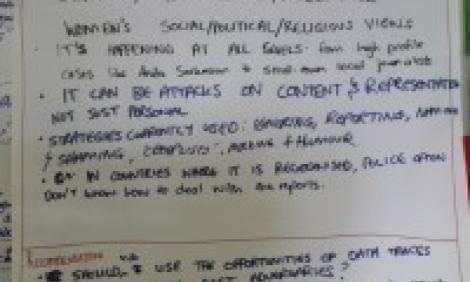 WOMEN'S SOCIAL/POLITICAL/RELIGIOUS VIEWS
• IT'S HAPPENING AT ALL LEVELS: from high profile
cases like Anita Sarkeesian to small town social journalists
• IT CAN BE ATTACKS ON CONTENT & REPRESENTATION
NOT JUST PERSONAL
• STRATEGIES CURRENTLY USED: IGNORING, REPORTING, NAMING
& SHAMING, , + HUMOUR
• IN COUNTRIES WHERE IT IS RECOGNISED, POLICE often
DON'T know how to deal with the reports.
SHOULD USE THE OPPORTUNITIES OF DATA TRACES
ADVERSARIES?